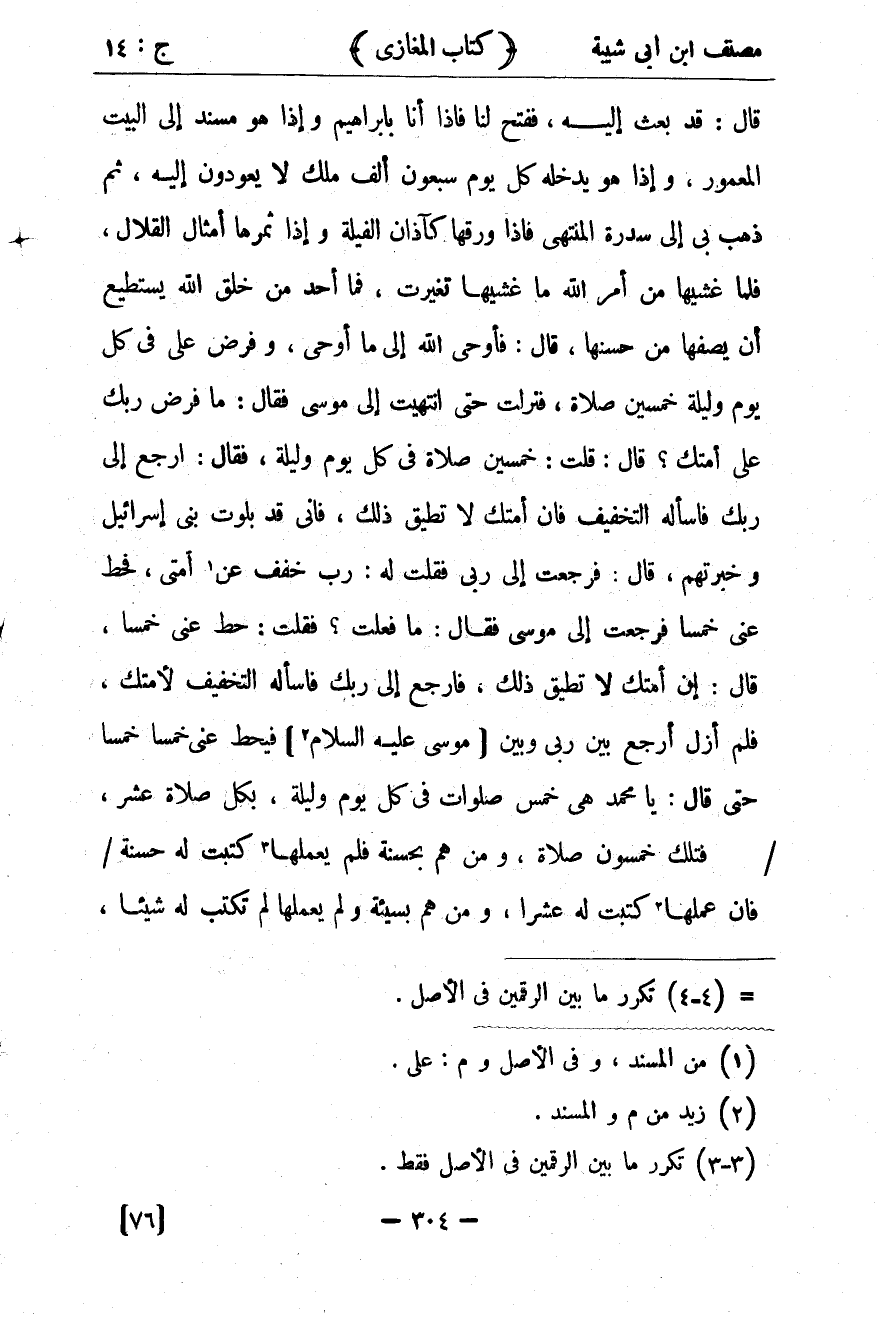 مصنف ابن ابى شيبة ﴿ كتاب المغازى ﴾ ج : ١٤
قال : قد بعث إليـــه ، ففتح لنا فاذا أنا بابراهيم و إذا هو مسند إلى البيت
المعمور ، و إذا هو يدخله كل يوم سبعون ألف ملك لا يعودون إليه ، ثم
ذهب بى إلى سدرة المنتهى فاذا ورقها كآذان الفيلة و إذا ثمرها أمثال القلال ،
فلما غشيها من أمر الله ما غشيهـا تغيرت ، فما أحد من خلق الله يستطيع
أن يصفها من حسنها ، قال : فأوحى الله إلى ما أوحى ، و فرض على فى كل
يوم وليلة خمسين صلاة ، فنزلت حتى انتهيت إلى موسى فقال : ما فرض ربك
على أمتك ؟ قال : قلت : خمسين صلاة فى كل يوم وليلة ، فقال : ارجع إلى
ربك فاسأله التخفيف فان أمتك لا تطيق ذلك ، فانى قد بلوت بنى إسرائيل
و خبرتهم ، قال : فرجعت إلى ربى فقلت له : رب خفف عن١ أمتى ، فحط
عنى خمسا فرجعت إلى موسى فقـال : ما فعلت ؟ فقلت : حط عنى خمسا ،
قال : إن أمتك لا تطيق ذلك ، فارجع إلى ربك فاسأله التخفيف لأمتك ،
فلم أزل أرجع بين ربى وبين [ موسى عليـه السلام٢ ] فيحط عنى خمسا خمسا
حتى قال : يا محمد هى خمس صلوات فى كل يوم وليلة ، بكل صلاة عشر ،
/ فتلك خمسون صلاة ، و من هم بحسنة فلم يعملهـا٣ كتبت له حسنة /
فان عملهـا٣ كتبت له عشرا ، و من هم بسيئة و لم يعملها لم تكتب له شيئـا ،
= (٤-٤) تكرر ما بين الرقمين فى الأصل .
(١) من المسند ، و فى الأصل و م : على .
(٢) زيد من م و المسند .
(٣-٣) تكرر ما بين الرقمين فى الأصل فقط .
– ٣٠٤ – [٧٦]